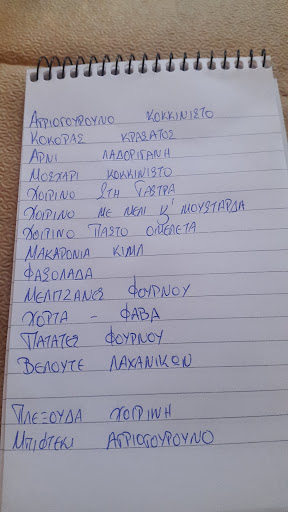 ΑΓΡΙΟΓΟΥΡΟΥΝΟ ΚΟΚΚΙΝΙΣΤΟ
ΚΟΚΟΡΑΣ ΚΡΑΣΑΤΟΣ
ΑΡΝΙ ΛΑΔΟΡΙΓΑΝΗ
ΜΟΣΧΑΡΙ ΚΟΚΚΙΝΙΣΤΟ
ΧΟΙΡΙΝΟ ΣΤΗ ΓΑΣΤΡΑ
ΧΟΙΡΙΝΟ ΜΕ ΜΕΛΙ Κ' ΜΟΥΣΤΑΡΔΑ
ΧΟΙΡΙΝΟ ΠΑΣΤΟ ΟΜΕΛΕΤΑ
ΜΑΚΑΡΟΝΙΑ ΚΙΜΑ
ΦΑΣΟΛΑΔΑ
ΜΕΛΙΤΖΑΝΕΣ ΦΟΥΡΝΟΥ
ΧΟΡΤΑ - ΦΑΒΑ
ΠΑΤΑΤΕΣ ΦΟΥΡΝΟΥ
ΒΕΛΟΥΤΕ ΛΑΧΑΝΙΚΩΝ
ΠΛΕΞΟΥΔΑ ΧΟΙΡΙΝΗ
ΜΠΙΦΤΕΚΙ ΑΓΡΙΟΓΟΥΡΟΥΝΟ